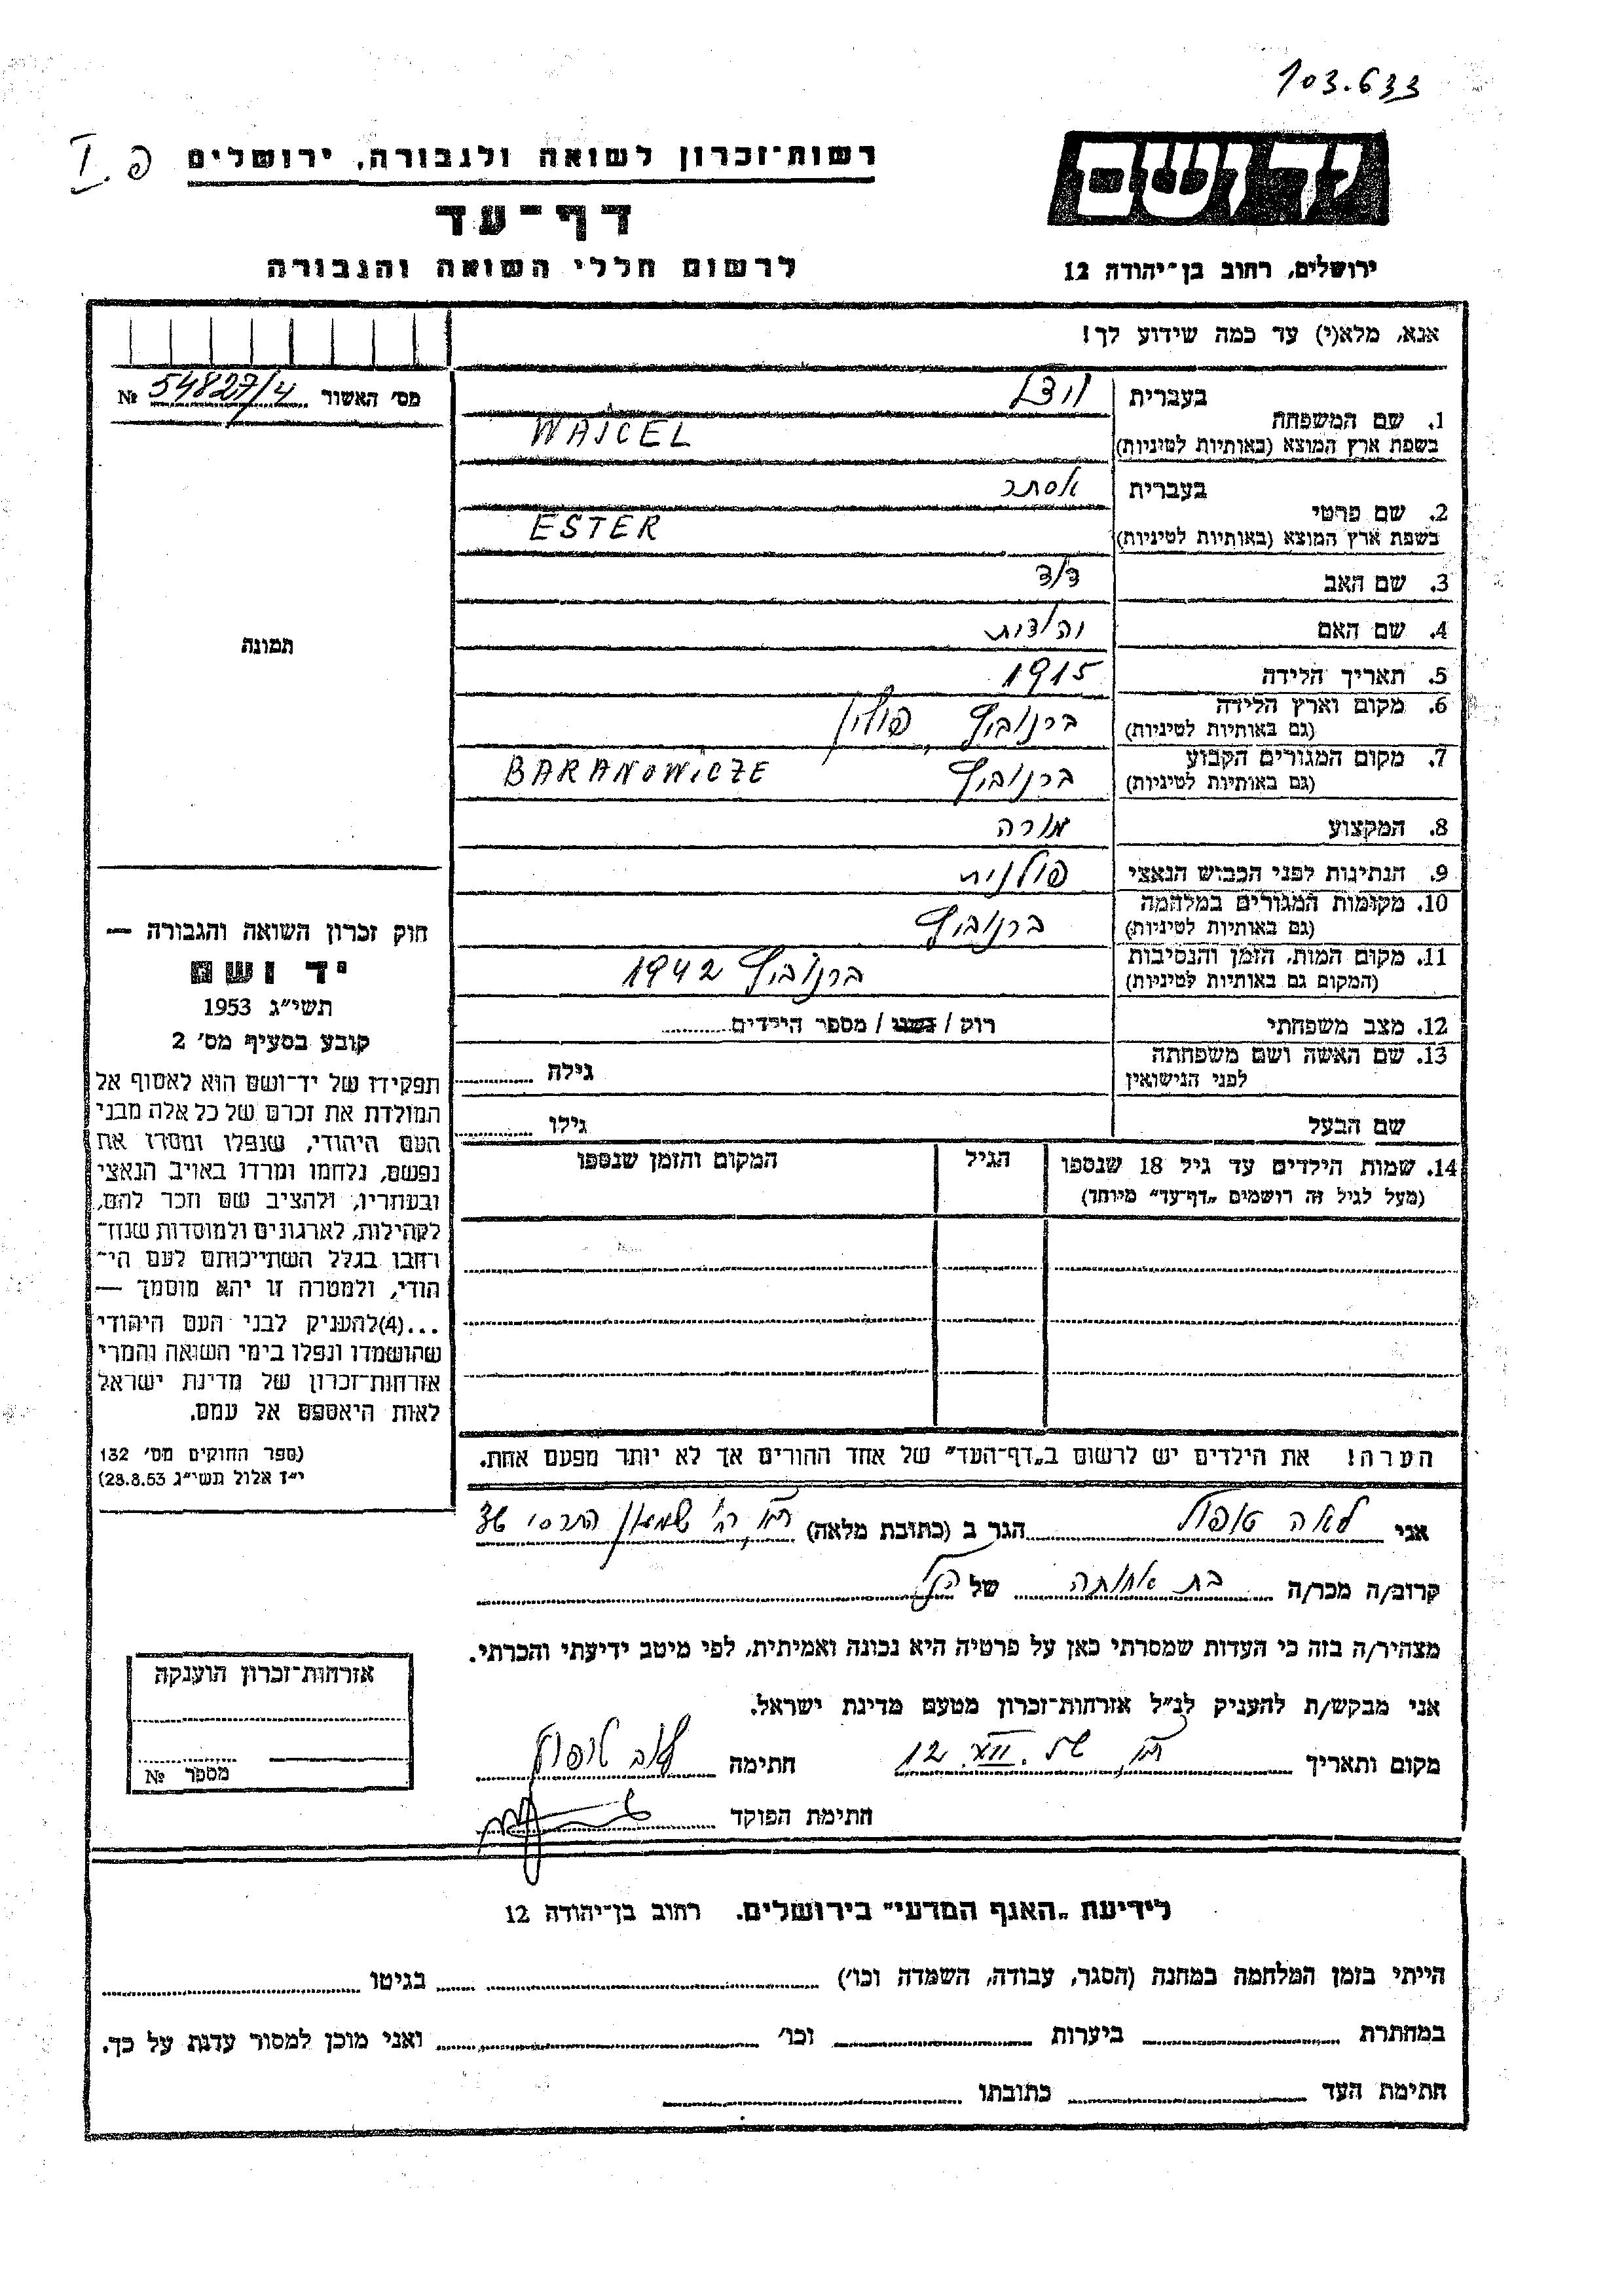 103.633
יד ושם
רשות־זכרון לשואה ולגבורה, ירושלים
פ. I
דף־עד
ירושלים, רחוב בן־יהודה 12
לרשום חללי השואה והגבורה
אנא, מלא(י) עד כמה שידוע לך!
מס׳ האשור 54827/4 №
1. שם המשפחה בעברית
בשפת ארץ המוצא (באותיות לטיניות) WAJCEL
2. שם פרטי בעברית אסתר
בשפת ארץ המוצא (באותיות לטיניות) ESTER
3. שם האב דוד
4. שם האם יהודית
תמונה
5. תאריך הלידה 1915
6. מקום וארץ הלידה ברנוביץ, פולין
(גם באותיות לטיניות)
7. מקום המגורים הקבוע ברנוביץ BARANOWICZE
(גם באותיות לטיניות)
8. המקצוע מורה
9. הנתינות לפני הכבוש הנאצי פולנית
10. מקומות המגורים במלחמה ברנוביץ
(גם באותיות לטיניות)
11. מקום המות, הזמן והנסיבות ברנוביץ 1942
(המקום גם באותיות לטיניות)
12. מצב משפחתי רוק / נשוי / מספר הילדים
13. שם האשה ושם משפחתה גילה
לפני הנישואין
שם הבעל גילו
14. שמות הילדים עד גיל 18 שנספו הגיל המקום והזמן שנספו
(מעל לגיל זה רושמים „דף־עד״ מיוחד)
חוק זכרון השואה והגבורה —
יד ושם
תשי״ג 1953
קובע בסעיף מס׳ 2
תפקידו של יד־ושם הוא לאסוף אל
המולדת את זכרם של כל אלה מבני
העם היהודי, שנפלו ומסרו את
נפשם, נלחמו ומרדו באויב הנאצי
ובעוזריו, ולהציב שם וזכר להם,
לקהילות, לארגונים ולמוסדות שנח־
רחבו בגלל השתייכותם לעם הי־
הודי, ולמטרה זו יהא מוסמך —
...(4)להעניק לבני העם היהודי
שהושמדו ונפלו בימי השואה והמרי
אזרחות־זכרון של מדינת ישראל
לאות היאספם אל עמם.
(ספר החוקים מס׳ 132
י״ז אלול תשי״ג 28.8.53)
הערה! את הילדים יש לרשום ב„דף־העד״ של אחד ההורים אך לא יותר מפעם אחת.
אני לאה הגר ב (כתובת מלאה) שמעון התרסי
קרוב/ה מכר/ה בת אחותה של הנ״ל
מצהיר/ה בזה כי העדות שמסרתי כאן על פרטיה היא נכונה ואמיתית, לפי מיטב ידיעתי והכרתי.
אני מבקש/ת להעניק לנ״ל אזרחות־זכרון מטעם מדינת ישראל.
מקום ותאריך 12 חתימה
חתימת הפוקד
אזרחות־זכרון הוענקה
מספר №
לידיעת „האגף המדעי״ בירושלים. רחוב בן־יהודה 12
הייתי בזמן המלחמה במחנה (הסגר, עבודה, השמדה וכו׳) בגיטו
במחתרת ביערות וכו׳ ואני מוכן למסור עדות על כך.
חתימת העד כתובתו